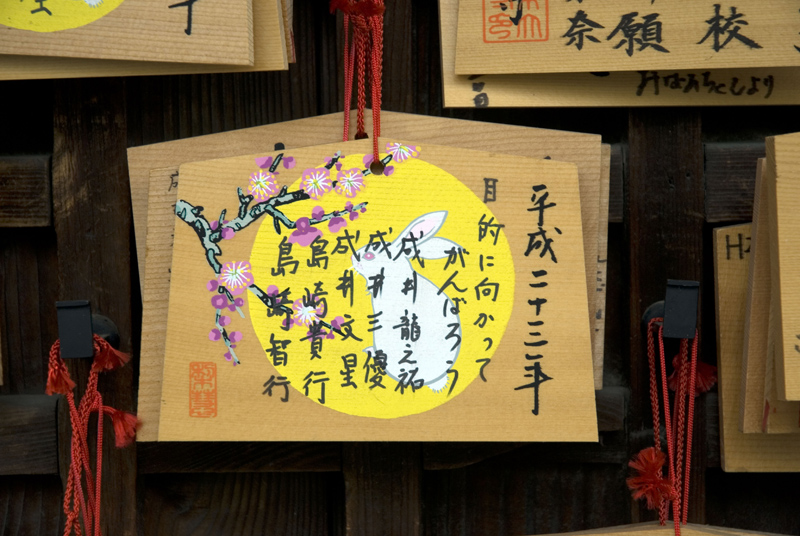 平成二十三年
目的に向かって
がんばろう
成井龍之祐
成井三優
成井文星
島崎貴行
島崎智行
奈
願
校